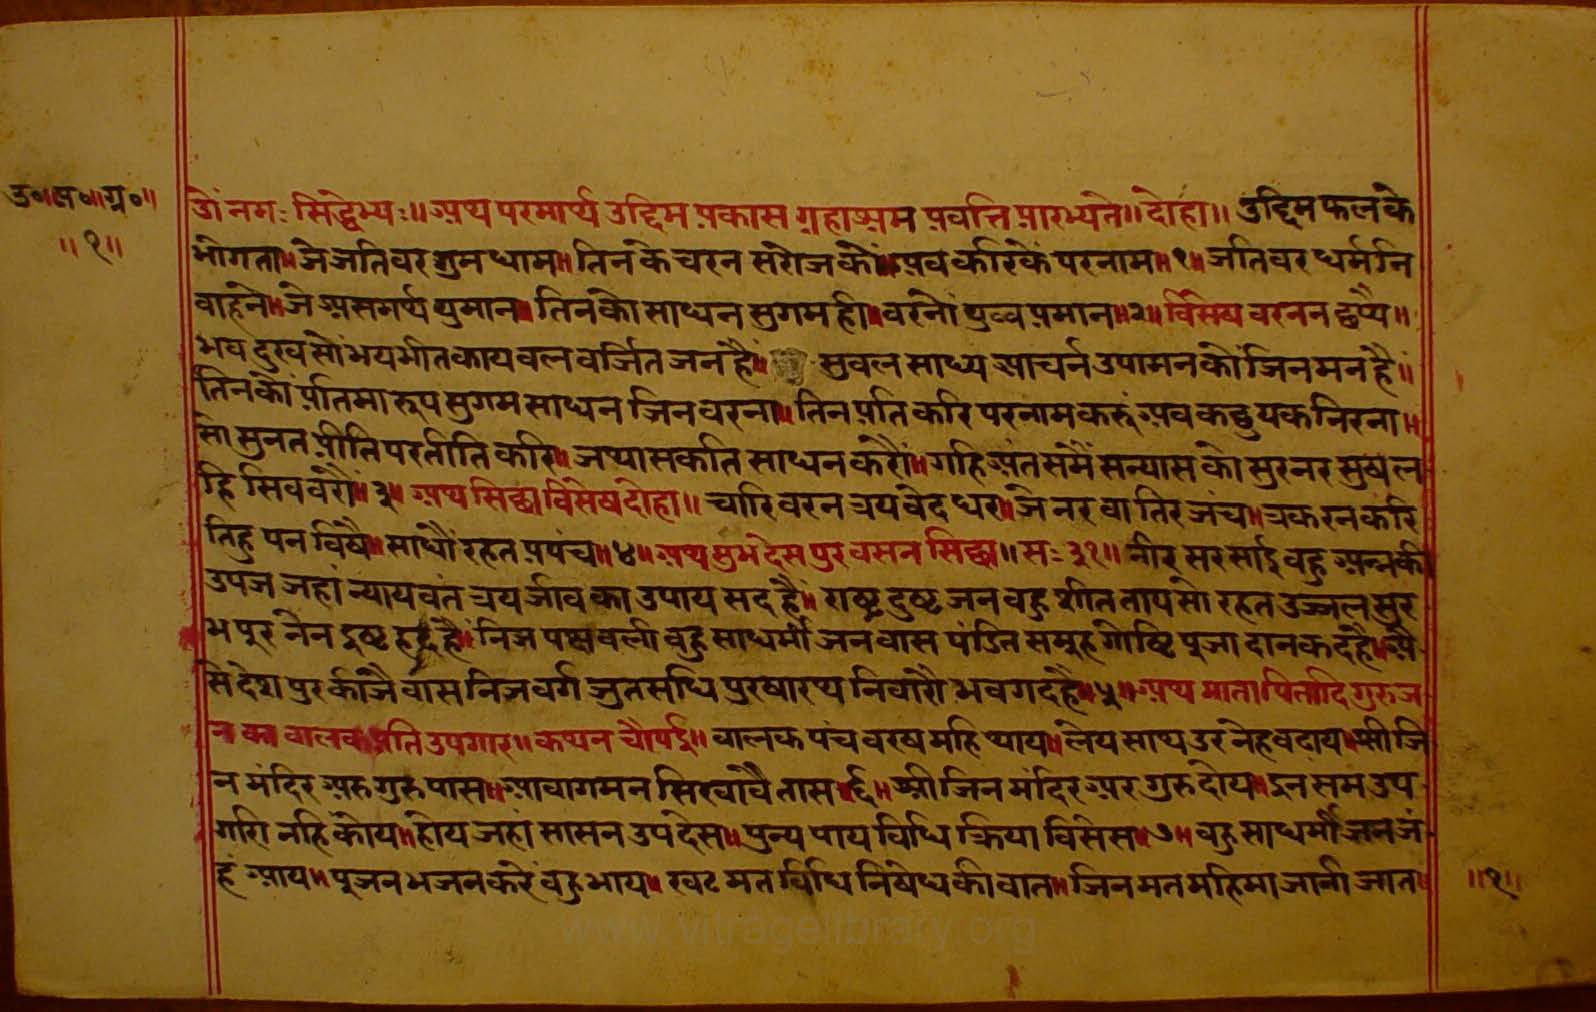 उ०॥प०॥ग्र०॥
॥१॥
ॐ नमः सिद्धेभ्यः॥ अथ परमार्थ्य उद्दिम प्रकास ग्रहाश्रम प्रवत्ति प्रारभ्यते॥ दोहा॥ उद्दिम फल के
भोगता॥ जे जतिवर गुन धाम॥ तिन के चरन सरोज कौं॥ अब करिकें परनाम॥१॥ जतिवर धर्म नि
वाहने॥ जे असमर्थ्य पुमान॥ तिनको साधन सुगम ही॥ वरनौं पुव्व प्रमान॥२॥ विसेष वरनन छप्पै॥
भव दुख सौं भयभीत काय वल वर्जित जन है॥ सुवल साध्य आचर्न उपामन कौं जिन मन है॥
तिनकौं प्रतिमा रूप सुगम साधन जिन वरना॥ तिन प्रति करि परनाम करूं अव कछु यक निरना॥
सो सुनत प्रीति परतीति करि॥ जथा सकति साधन करौं॥ गहि अंत समैं सन्यास को सुर नर सुष ल
हि सिव वरौं॥३॥ अथ सिछ्या विसेष दोहा॥ चारि वरन त्रय वेद धर॥ जे नर वा तिरजंच॥ त्रकरन करि
तिहु पन विषैं॥ साधौं रहत प्रपंच॥४॥ अथ सुभ देस पुर वसन सिछ्या॥ सः ३१॥ नीर सर सांई वहु अन्न की
उपज जहां न्यायवंत त्रय जीव का उपाय सद है॥ राष्ट्र दुष्ट जन वहु शीत ताप सो रहत उज्जल सुर
भ पुर नैन इष्ट हद्द है॥ निज पक्ष वली वहु साधर्मी जन वास पंडित समूह गोष्टि पूजा दान कद है॥ अै
से देश पुर कीजै वास निज वर्ग जुत सधि पुरषारथ निवारौ भव गद है॥५॥ अथ माता पितादि गुरु ज
न का वालक प्रति उपगार॥ कथन चौपई॥ वालक पंच वरष महि थाय॥ लेय साथ उर नेह वढाय॥ श्री जि
न मंदिर अरु गुरु पास॥ आवागमन सिखावै तास॥६॥ श्री जिन मंदिर अर गुरु दोय॥ इन सम उप
गारी नहि कोय॥ होय जहां सासन उपदेस॥ पुन्य पाय विधि क्रिया विसेस॥७॥ वहु साधर्मी जन जं
हं आय॥ पूजन भजन करें वहु भाय॥ खट मत विधि निषेध की वात॥ जिन मत महिमा जानी जात॥
॥१॥
www.vitragelibrary.org